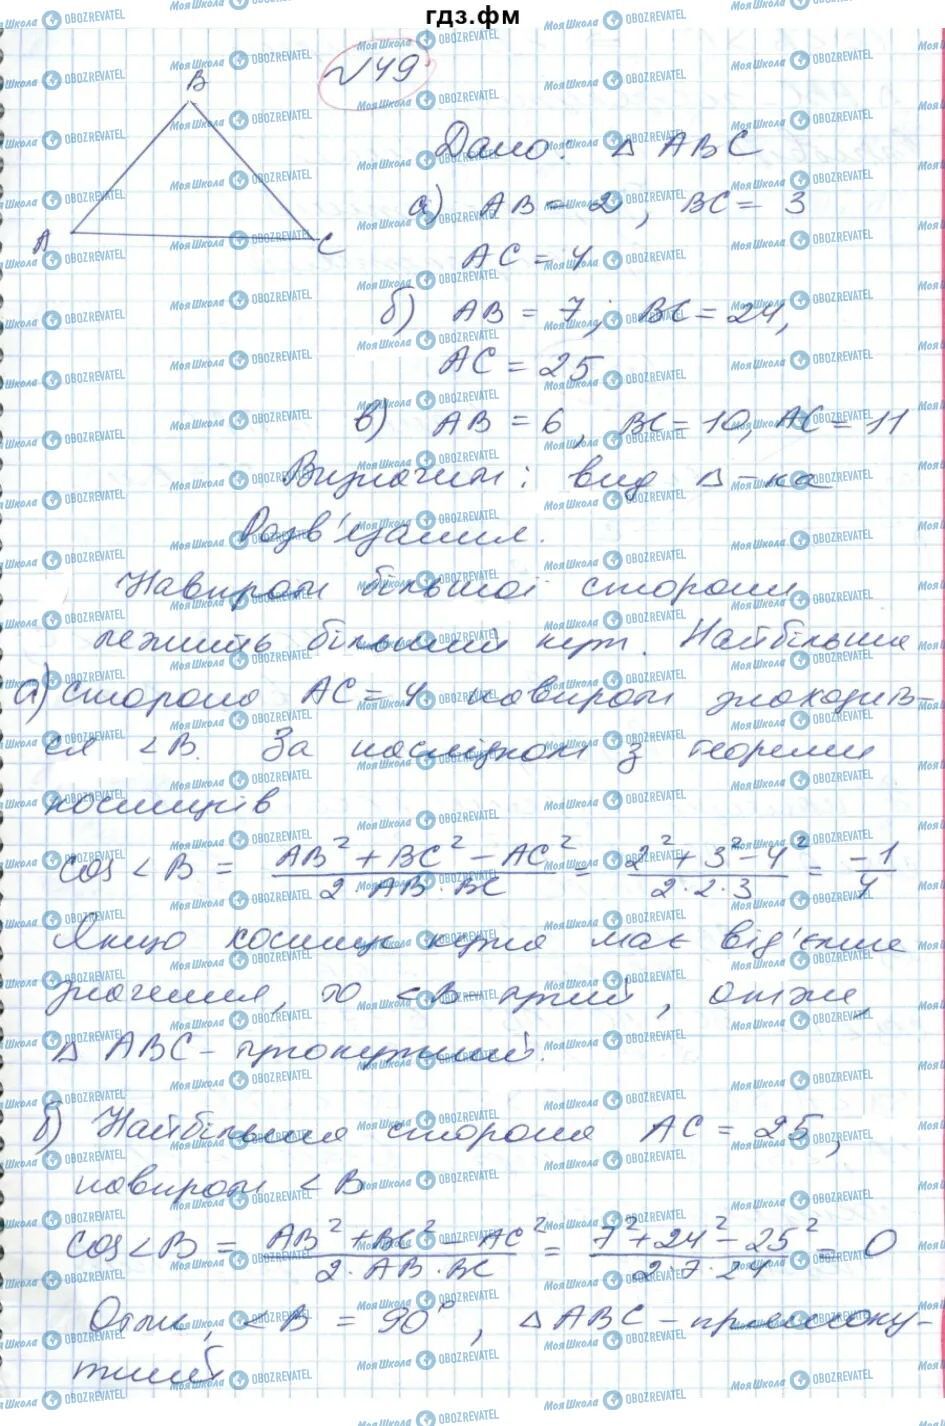 гдз.фм
№49
B
A
C
Дано: △ ABC
а) AB = 2, BC = 3
AC = 4
б) AB = 7; BC = 24,
AC = 25
в) AB = 6, BC = 10, AC = 11
Визначити: вид △-ка
Розв'язання.
Навпроти більшої сторони
лежить більший кут. Найбільша
а) сторона AC = 4 навпроти знаходить-
ся <B. За наслідком з теореми
косинусів
cos<B = (AB² + BC² - AC²)/(2·AB·BC) = (2² + 3² - 4²)/(2·2·3) = -1/4
Якщо косинус кута має від'ємне
значення, то <B - тупий, отже,
△ ABC - тупокутний.
б) Найбільша сторона AC = 25,
навпроти <B
cos<B = (AB² + BC² - AC²)/(2·AB·BC) = (7² + 24² - 25²)/(2·7·24) = 0
Отже, <B = 90°, △ABC - прямоку-
тний
МояШкола OBOZREVATEL